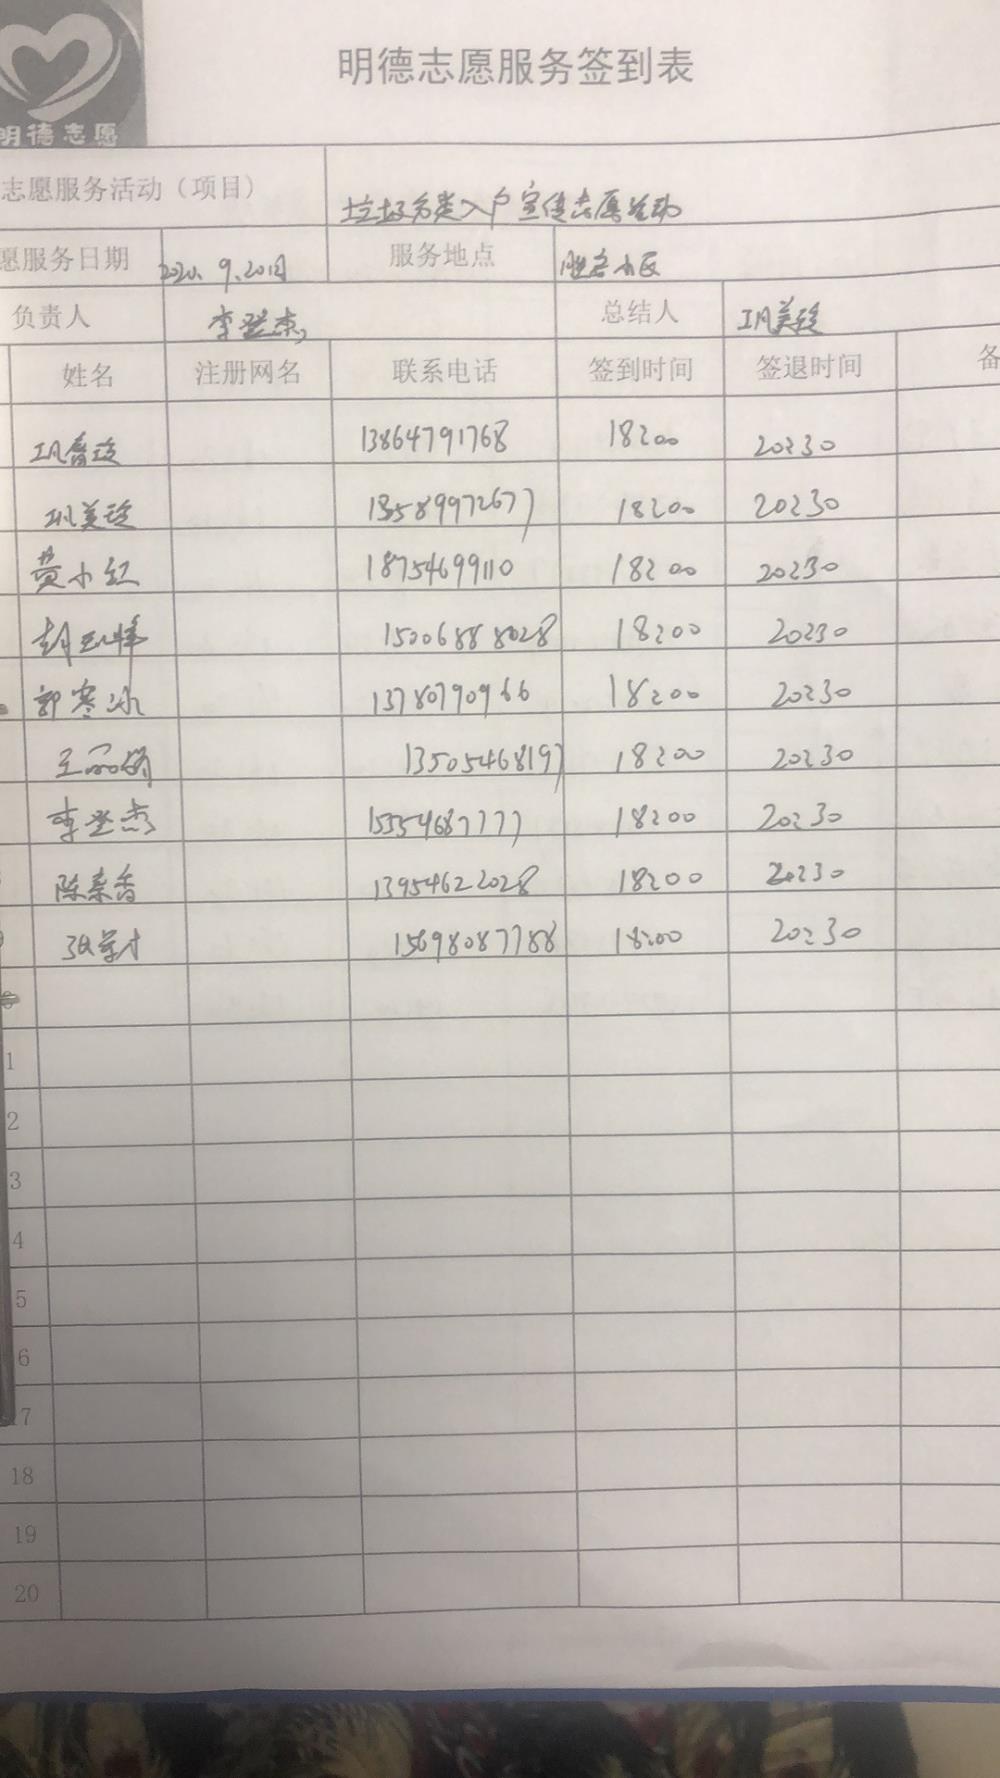 明德志愿
明德志愿服务签到表
志愿服务活动（项目） 垃圾分类入户宣传志愿活动
愿服务日期 2020.9.20日 服务地点 胜安小区
负责人 李登杰 总结人 巩美玲
姓名 注册网名 联系电话 签到时间 签退时间 备
巩 13864791768 18:00 20:30
巩美玲 13589972677 18:00 20:30
黄小红 18754699110 18:00 20:30
胡 15006888028 18:00 20:30
郭寒冰 13780790966 18:00 20:30
王丽娟 13505468197 18:00 20:30
李登杰 15554687777 18:00 20:30
陈秦香 13954622028 18:00 20:30
张 15698087788 18:00 20:30
1
2
3
4
5
6
17
18
19
20